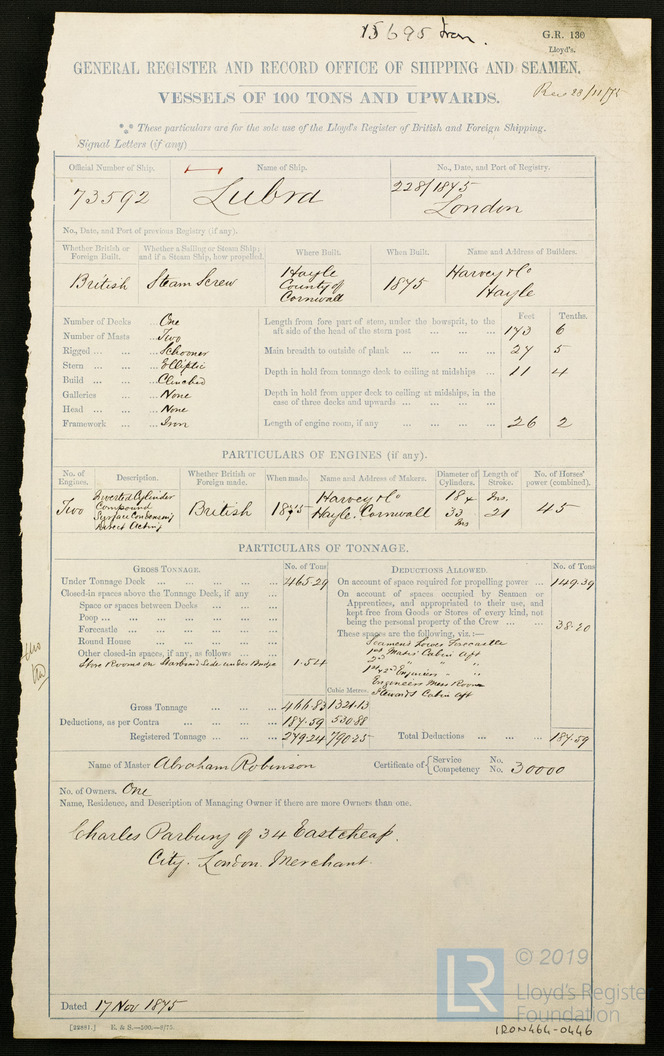 15695 Iron.
G.R. 130
Lloyd's.
GENERAL REGISTER AND RECORD OFFICE OF SHIPPING AND SEAMEN.
Rec 23/11/75
VESSELS OF 100 TONS AND UPWARDS.
These particulars are for the sole use of the Lloyd's Register of British and Foreign Shipping.
Signal Letters (if any)
Official Number of Ship. Name of Ship. No., Date, and Port of Registry.
73592 Lubra 228/1875
London
No., Date, and Port of previous Registry (if any).
Whether British or Foreign Built. Whether a Sailing or Steam Ship; and if a Steam Ship, how propelled. Where Built. When Built. Name and Address of Builders.
British Steam Screw Hayle County of Cornwall 1875 Harvey & Co Hayle
Feet Tenths.
Number of Decks ... One
Number of Masts ... Two
Rigged ... Schooner
Stern ... Elliptic
Build ... Clinched
Galleries ... None
Head ... None
Framework ... Iron
Length from fore part of stem, under the bowsprit, to the
aft side of the head of the stern post ... 173 6
Main breadth to outside of plank ... 27 5
Depth in hold from tonnage deck to ceiling at midships ... 11 4
Depth in hold from upper deck to ceiling at midships, in the
case of three decks and upwards ...
Length of engine room, if any ... 26 2
PARTICULARS OF ENGINES (if any).
No. of Engines. Description. Whether British or Foreign made. When made. Name and Address of Makers. Diameter of Cylinders. Length of Stroke. No. of Horses' power (combined).
Two Inverted Cylinder Compound Surface Condensing Direct Acting British 1875 Harvey & Co Hayle. Cornwall 18 & 33 Ins Ins. 21 45
PARTICULARS OF TONNAGE.
GROSS TONNAGE. No. of Tons
Under Tonnage Deck ... 465.29
Closed-in spaces above the Tonnage Deck, if any ...
Space or spaces between Decks ...
Poop ...
Forecastle ...
Round House ...
Other closed-in spaces, if any, as follows ...
Store Rooms on Starboard Side under Bridge 1.54
Cubic Metres.
Gross Tonnage ... 466.83 1321.13
Deductions, as per Contra ... 187.59 530.88
Registered Tonnage ... 279.24 790.25
DEDUCTIONS ALLOWED. No. of Tons
On account of space required for propelling power ... 149.39
On account of spaces occupied by Seamen or
Apprentices, and appropriated to their use, and
kept free from Goods or Stores of every kind, not
being the personal property of the Crew ... 38.20
These spaces are the following, viz.:—
Seamens Lower Forecastle
1st Mates Cabin aft
2nd " " "
1st & 2nd Engineers " "
Engineers Mess Room
Stewards Cabin aft
Total Deductions ... 187.59
Name of Master Abraham Robinson Certificate of { Service No.
Competency No. 30000
No. of Owners. One
Name, Residence, and Description of Managing Owner if there are more Owners than one.
Charles Parbury of 34 Eastcheap.
City. London. Merchant.
Dated 17 Nov 1875
[22881.] E. & S.—500.—8/75.
LR
© 2019
Lloyd's Register
Foundation
IRON464-0446